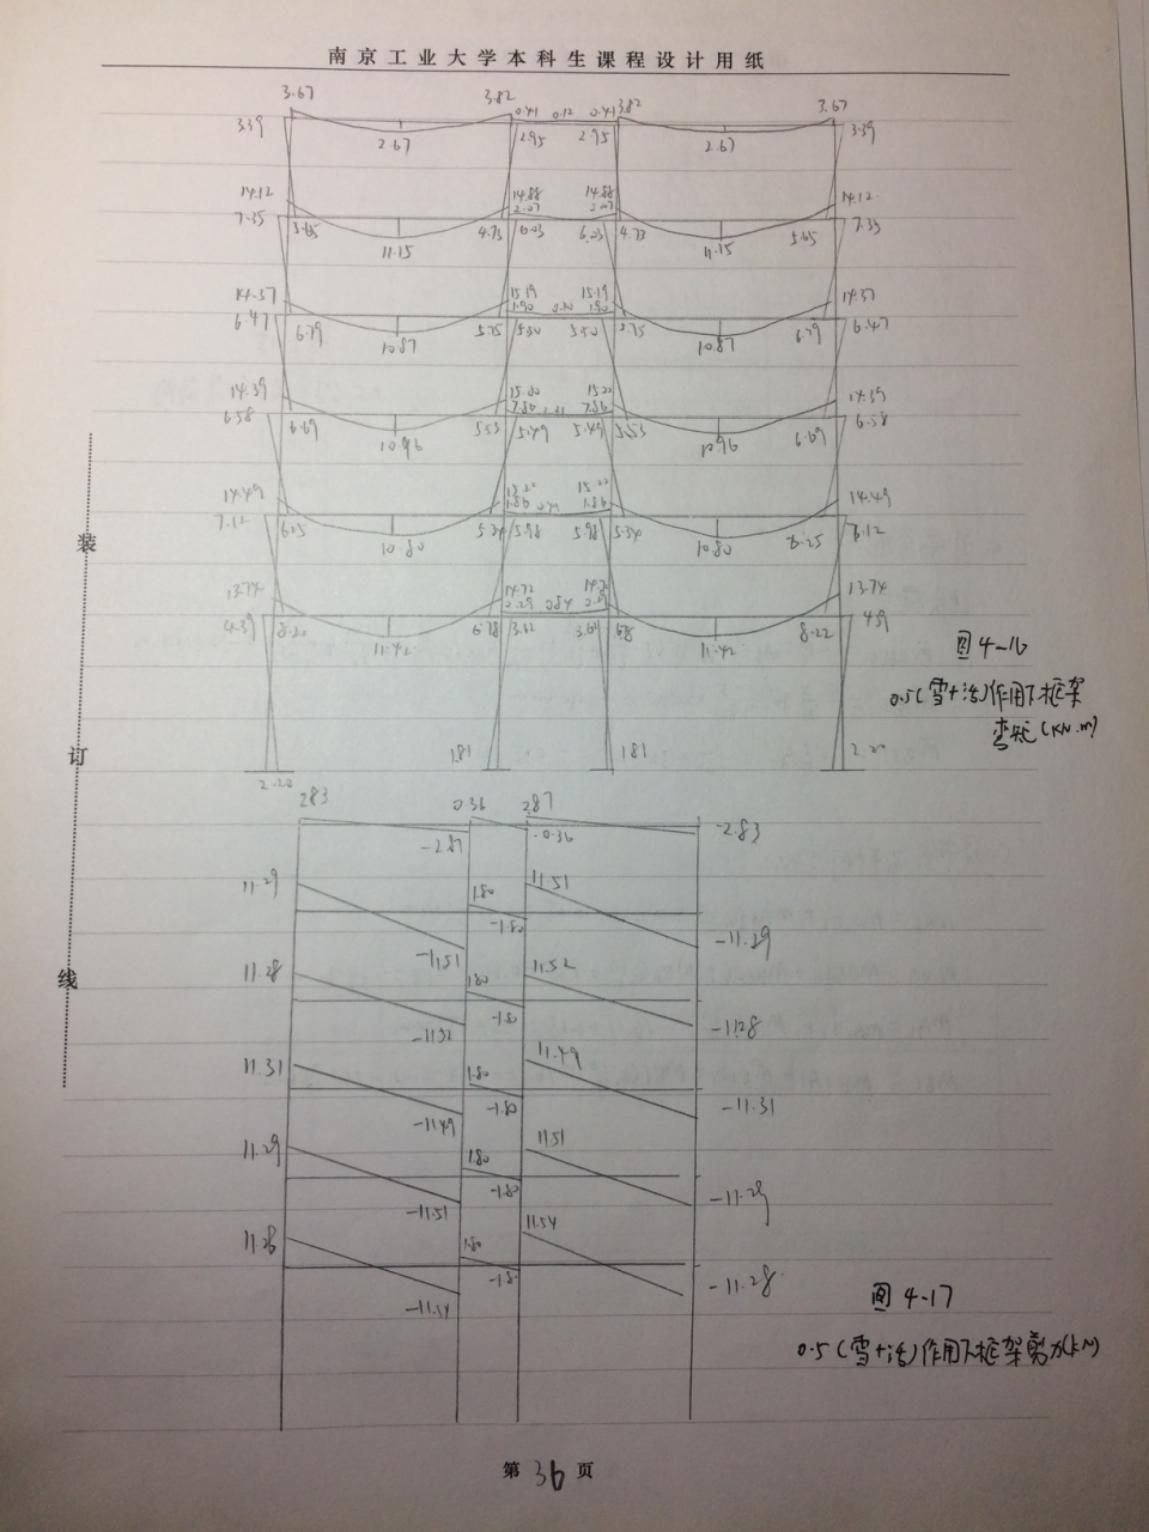 南京工业大学本科生课程设计用纸
3.67 3.82 0.41 0.12 0.41 3.82 3.67
3.39 2.67 2.95 2.95 2.67 3.39
14.12 14.88 14.88 14.12
2.07 2.07
7.35 5.65 11.15 4.73 6.03 6.03 4.73 11.15 5.65 7.35
14.37 15.19 15.19 14.37
1.90 1.90
6.47 6.79 10.87 5.75 5.50 5.50 5.75 10.87 6.79 6.47
14.39 15.20 15.20 14.39
7.86 7.86
6.58 6.69 10.96 5.53 5.49 5.49 5.53 10.96 6.69 6.58
14.49 15.22 15.22 14.49
1.86 1.86
7.12 6.25 10.80 5.34 5.98 5.98 5.34 10.80 6.25 7.12
13.74 14.72 14.72 13.74
2.29 0.84 2.29
4.39 8.22 11.42 6.78 3.62 3.62 6.78 11.42 8.22 4.39
图4-16
0.5(雪+活)作用下框架
弯矩(KN.m)
1.81 1.81 2.20
2.20
2.83 0.36 2.87
-2.87 -0.36 -2.83
11.29 1.80 11.51
-11.51 -1.80 -11.29
11.28 1.80 11.52
-11.52 -1.80 -11.28
11.31 1.80 11.49
-11.49 -1.80 -11.31
11.29 1.80 11.51
-11.51 -1.80 -11.29
11.28 1.80 11.54
-11.54 -1.80 -11.28
图4-17
0.5(雪+活)作用下框架剪力(kN)
装
订
线
第36页